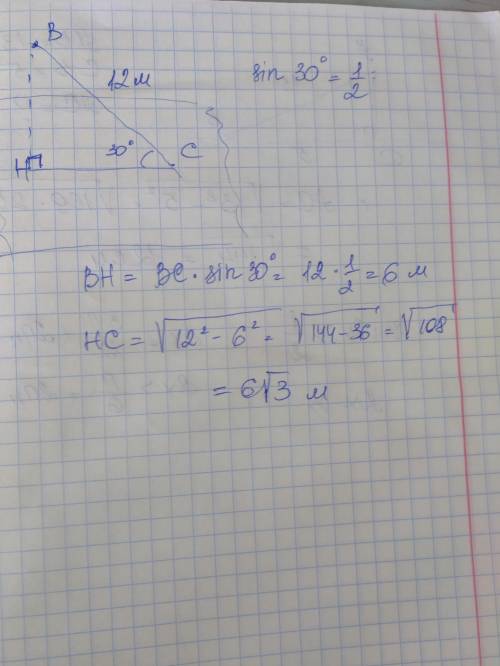 B
12 м
sin 30° = 1/2
30°
C
H
BH = BC · sin 30° = 12 · 1/2 = 6 м
HC = √(12² - 6²) = √(144-36) = √108
= 6√3 м